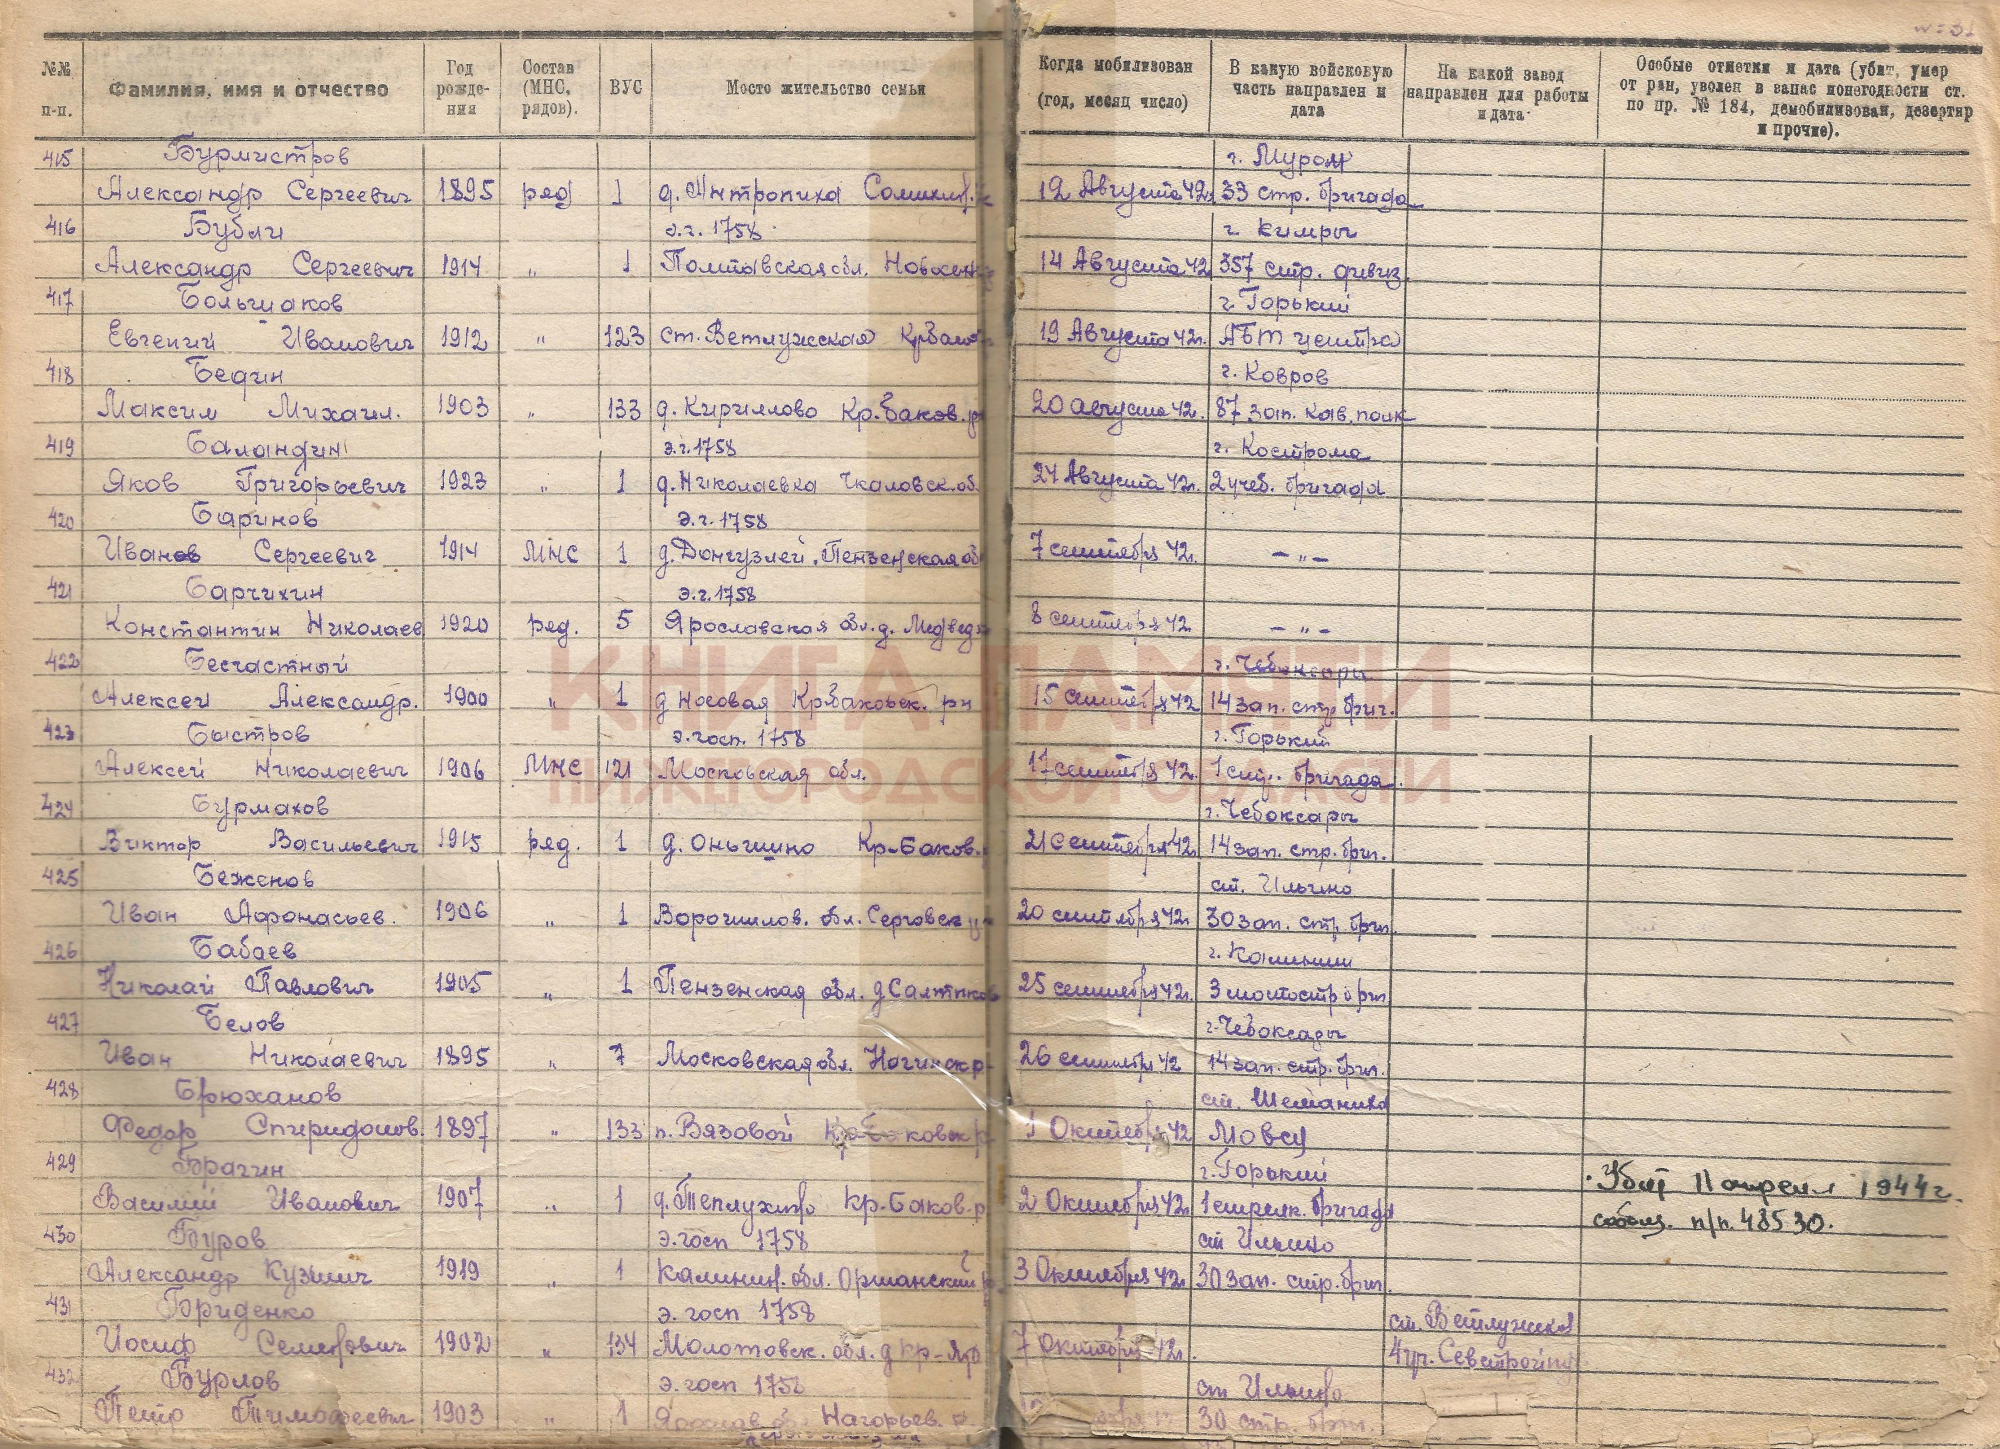 №№ п-п. Фамилия, имя и отчество Год рождения Состав (МНС, рядов). ВУС Место жительство семьи Когда мобилизован (год, месяц число) В какую войсковую часть направлен и дата На какой завод направлен для работы и дата Особые отметки и дата (убит, умер от ран, уволен в запас понегодности ст. по пр. № 184, демобилизован, дезертир и прочие).
415 Бурмистров г. Муром
Александр Сергеевич 1895 ряд 1 д. Антропиха 12 Августа 42г. 33 стр. бригада
416 Бубли э.г. 1758 г. Кимры
Александр Сергеевич 1914 " 1 Полтавская обл. 14 Августа 42 357 стр. дивиз.
417 Большаков г. Горький
Евгений Иванович 1912 " 123 ст. Ветлужская 19 Августа 42г. АБТ центра
418 Бедин г. Ковров
Максим Михаил. 1903 " 133 д. Кириллово Кр.Баков. р 20 августа 42г. 87 зап. кав. полк
419 Баландин э.г. 1758 г. Кострома
Яков Григорьевич 1923 " 1 д. Николаевка Чкаловск. об. 24 Августа 42г. 2 учеб. бригада
420 Баринов э.г. 1758
Иван Сергеевич 1914 МНС 1 д. Донгузлей. Пензенская об 7 сентября 42г. – " –
421 Барчихин э.г. 1758
Константин Николаев 1920 ряд. 5 Ярославская обл. д. 8 сентября 42 – " –
422 Бесчастный г. Чебоксары
Алексей Александр. 1900 " 1 д Носовая Крбаковск. рн 15 сентября 42 14 зап. стр. бриг.
423 Быстров э. госп. 1758 г. Горький
Алексей Николаевич 1906 МНС 121 Московская обл. 17 сентября 42. 1 стр. бригада
424 Бурмахов г. Чебоксары
Виктор Васильевич 1915 ряд. 1 д. Оньшино Кр-Баков. 21 сентября 42 14 зап. стр. бриг.
425 Беженов ст. Ильино
Иван Афонасьев. 1906 " 1 Ворошилов. обл. 20 сентября 42г. 30 зап. стр. бриг.
426 Бабаев г. Калинин
Николай Павлович 1905 " 1 Пензенская обл. д Салтыков 25 сентября 42г. 3 мостостр бриг
427 Белов г. Чебоксары
Иван Николаевич 1895 " 7 Московская обл. Ногинск р- 26 сентября 42 14 зап. стр. бриг.
428 Брюханов ст. Шеманиха
Федор Спиридонов. 1897 " 133 п. Вязовой 1 Октября 42 Мовсу
429 Брагин г. Горький
Василий Иванович 1907 " 1 д. Теплухино Кр-Баков. р 2 Октября 42г. 1 стрелк. бригада Убит 11 апреля 1944 г.
430 Буров э. госп 1758 ст Ильино сообщ. п/п. 48530.
Александр Кузмич 1919 " 1 Калинин. обл. Оршанский р 3 Октября 42г. 30 зап. стр. бриг.
431 Бриденко э. госп 1758 ст. Ветлужская
Иосиф Семенович 1902 " 134 Молотовск. обл. д 7 Октября 42г. 4 уч.
432 Бурлов э. госп 1758 ст Ильино
Петр Тимофеевич 1903 " 1 Нагорьев. 30 стр. бриг.
КНИГА ПАМЯТИ
НИЖЕГОРОДСКОЙ ОБЛАСТИ